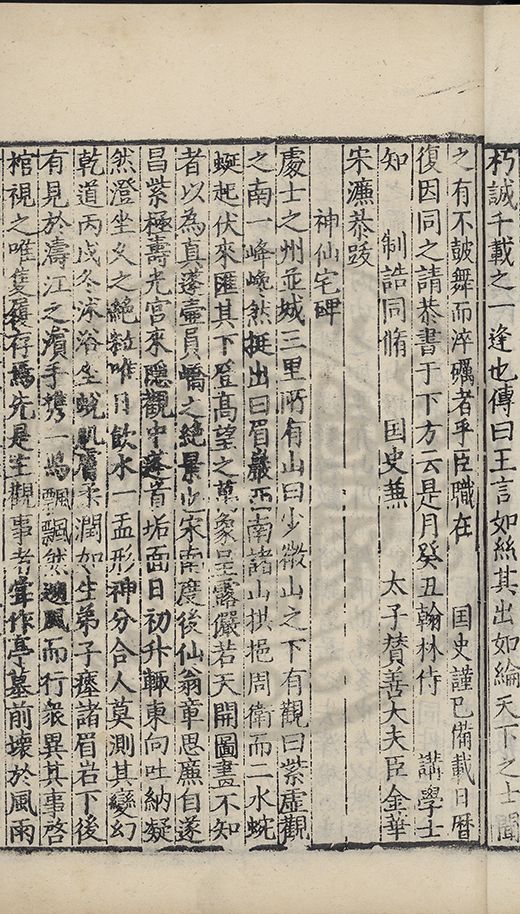 朽誠千載之一逢也傳曰王言如絲其出如綸天下之士聞
之有不鼓舞而淬礪者乎臣職在 国史謹已備載日曆
復因同之請恭書于下方云是月癸丑翰林侍 講學士
知 制誥同脩 国史兼 太子賛善大夫臣金華
宋濂恭跋
神仙宅碑
處士之州並城三里所有山曰少微山之下有觀曰紫虛觀
之南一峰巉然挺出曰眉巖西南諸山拱挹周衛而二水蜿
蜒起伏來匯其下登髙望之萬象呈露儼若天開圖畫不知
者以為真蓬壷員嶠之絶景也宋南度後仙翁章思廉自遂
昌紫極壽光宮來隱觀中蓬首垢面日初升輙東向吐納凝
然澄坐乆之絶粒唯日飲水一盂形神分合人莫測其變幻
乾道丙戍冬沐浴坐蛻肌膚柔潤如生弟子瘞諸眉岩下後
有見於濤江之濵手携一舄飄飄然遡風而行衆異其事啓
棺視之唯隻履存焉先是主觀事者甞作亭墓前壊於風雨